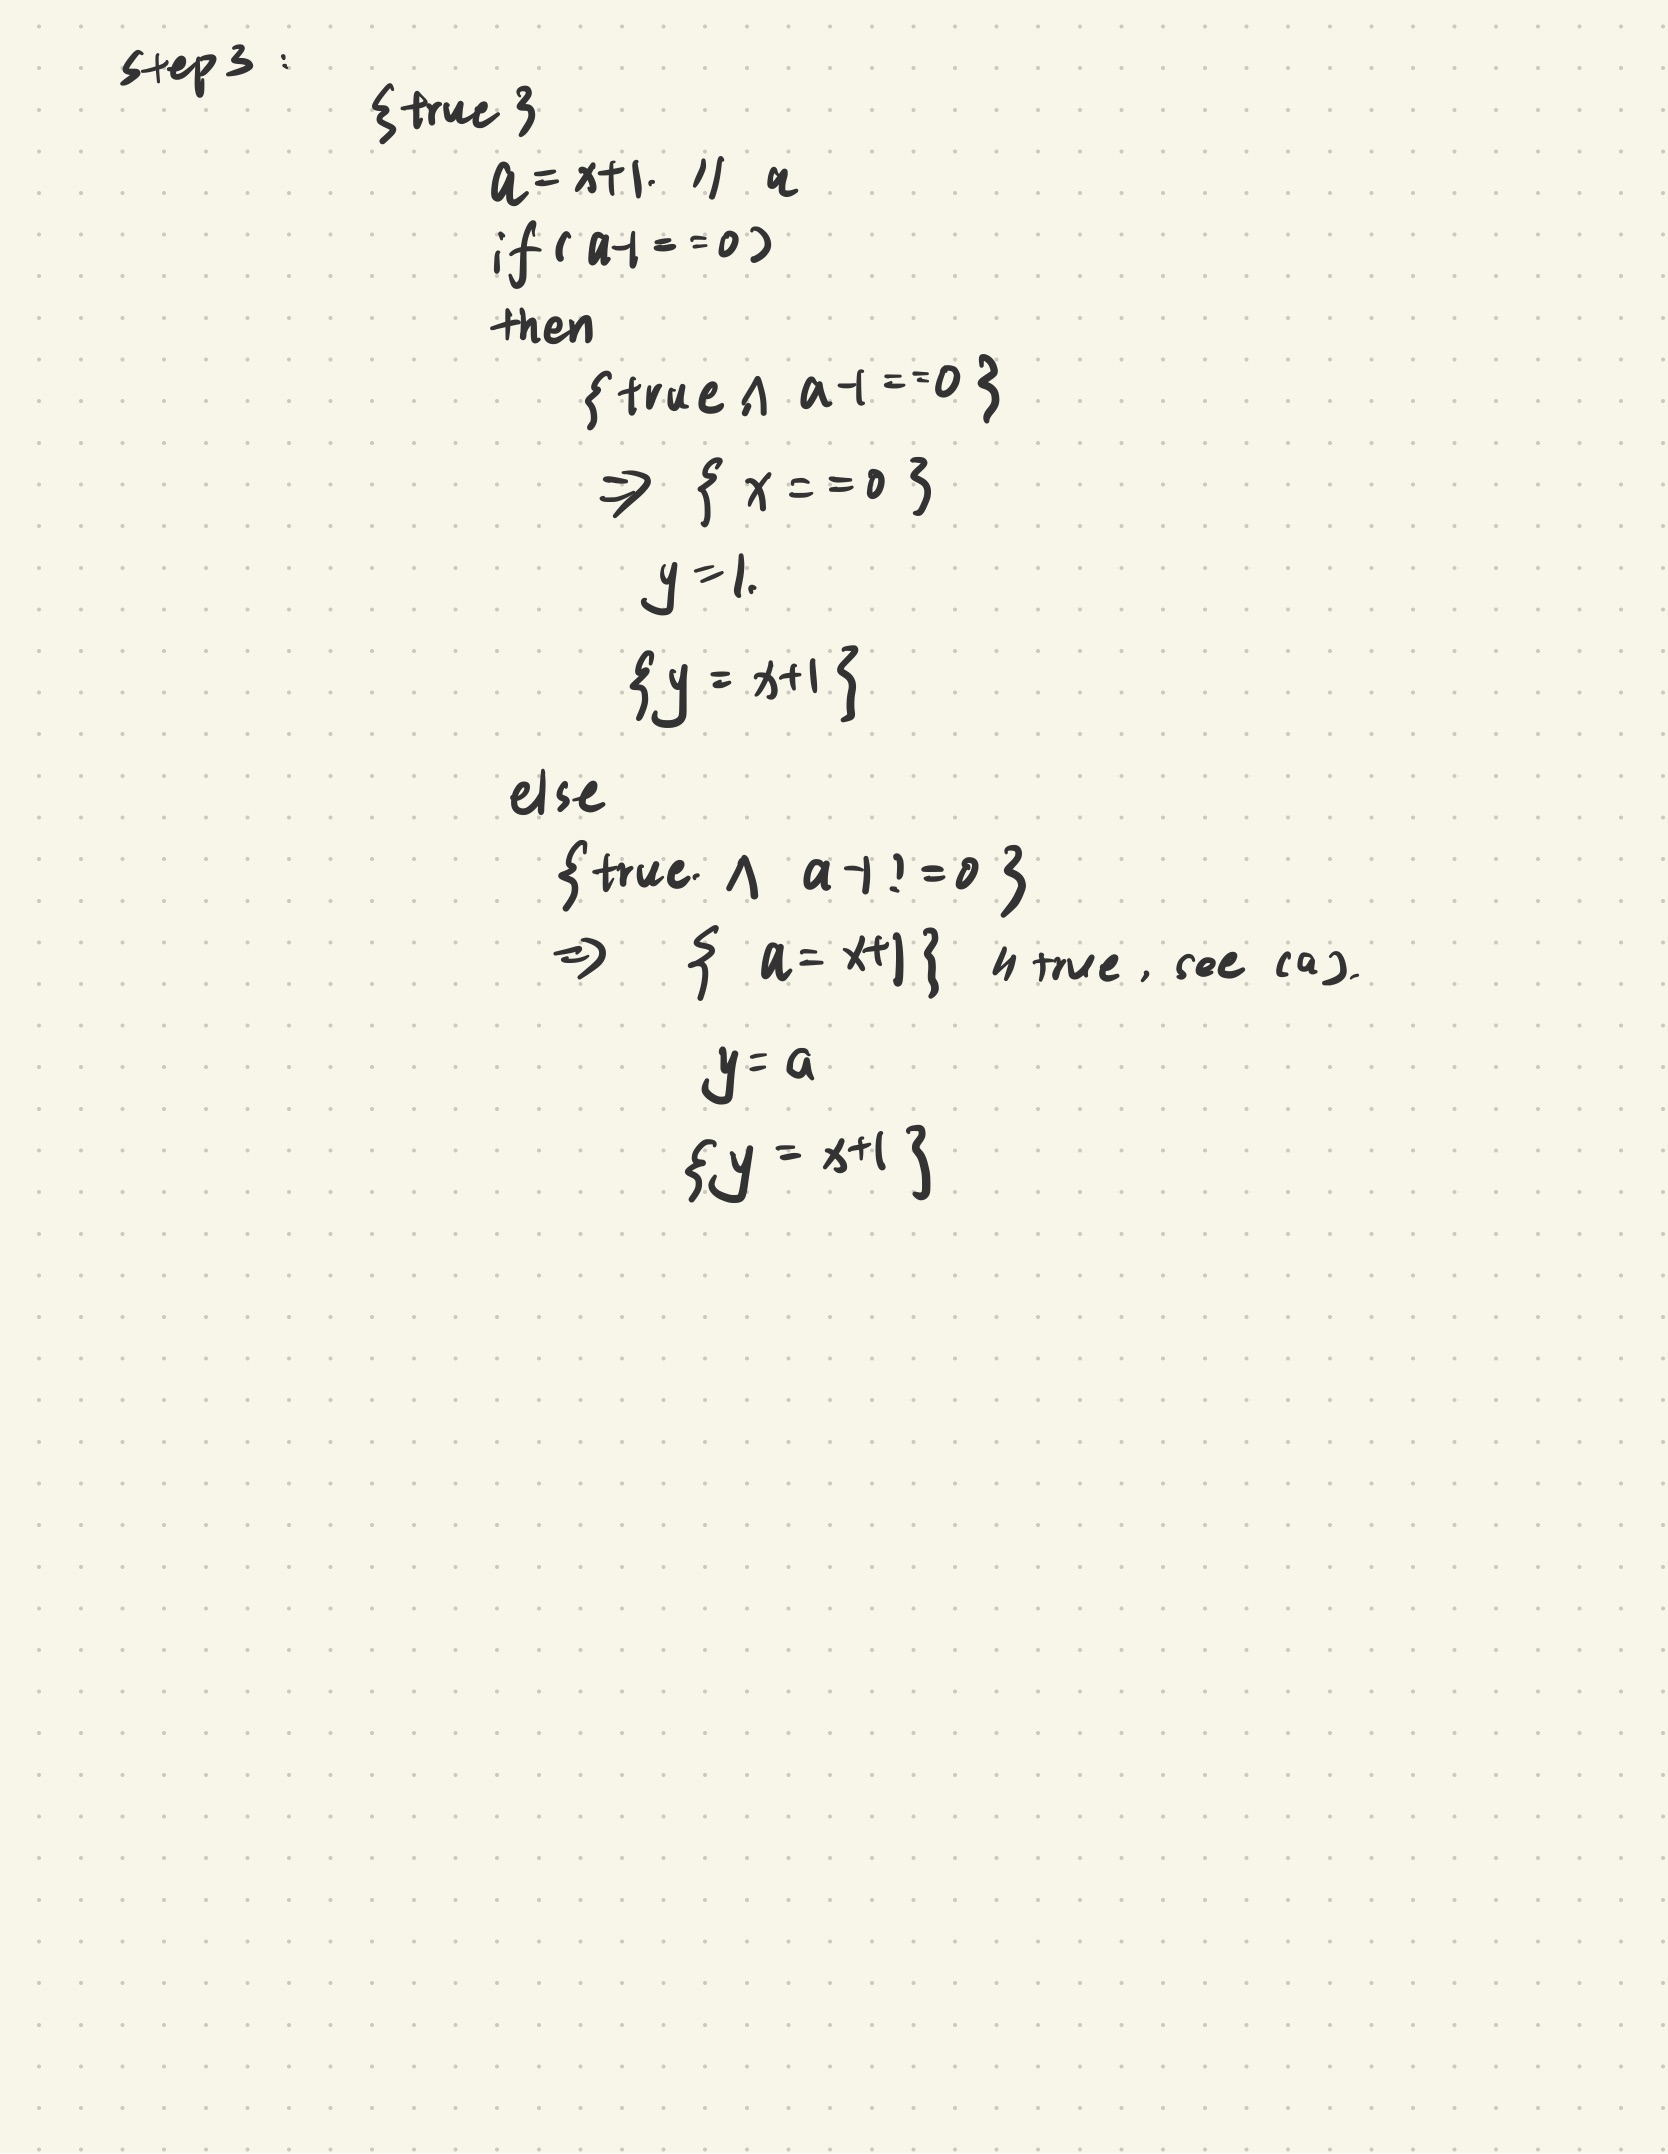 step 3 :
{true}
a = x+1. // a
if ( a-1 == 0 )
then
{ true ∧ a-1 == 0 }
⇒ { x == 0 }
y = 1.
{y = x+1}
else
{true. ∧ a-1 != 0 }
⇒ { a = x+1} // true, see (a).
y = a
{y = x+1 }